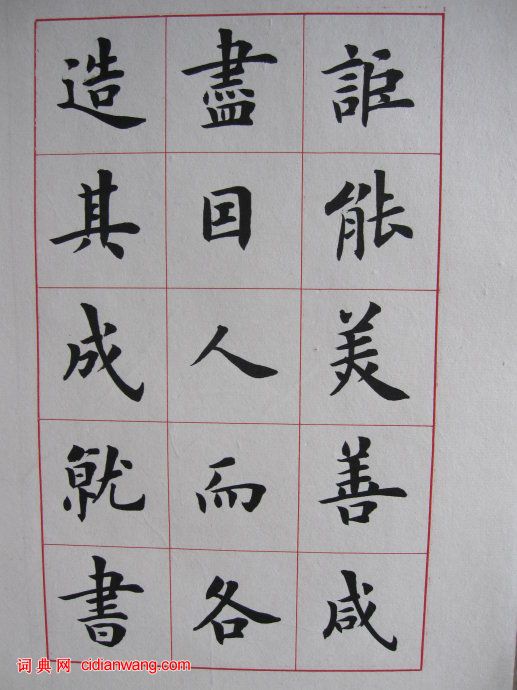 詎能美善咸
盡因人而各
造其成就書
词典网 cidianwang.com